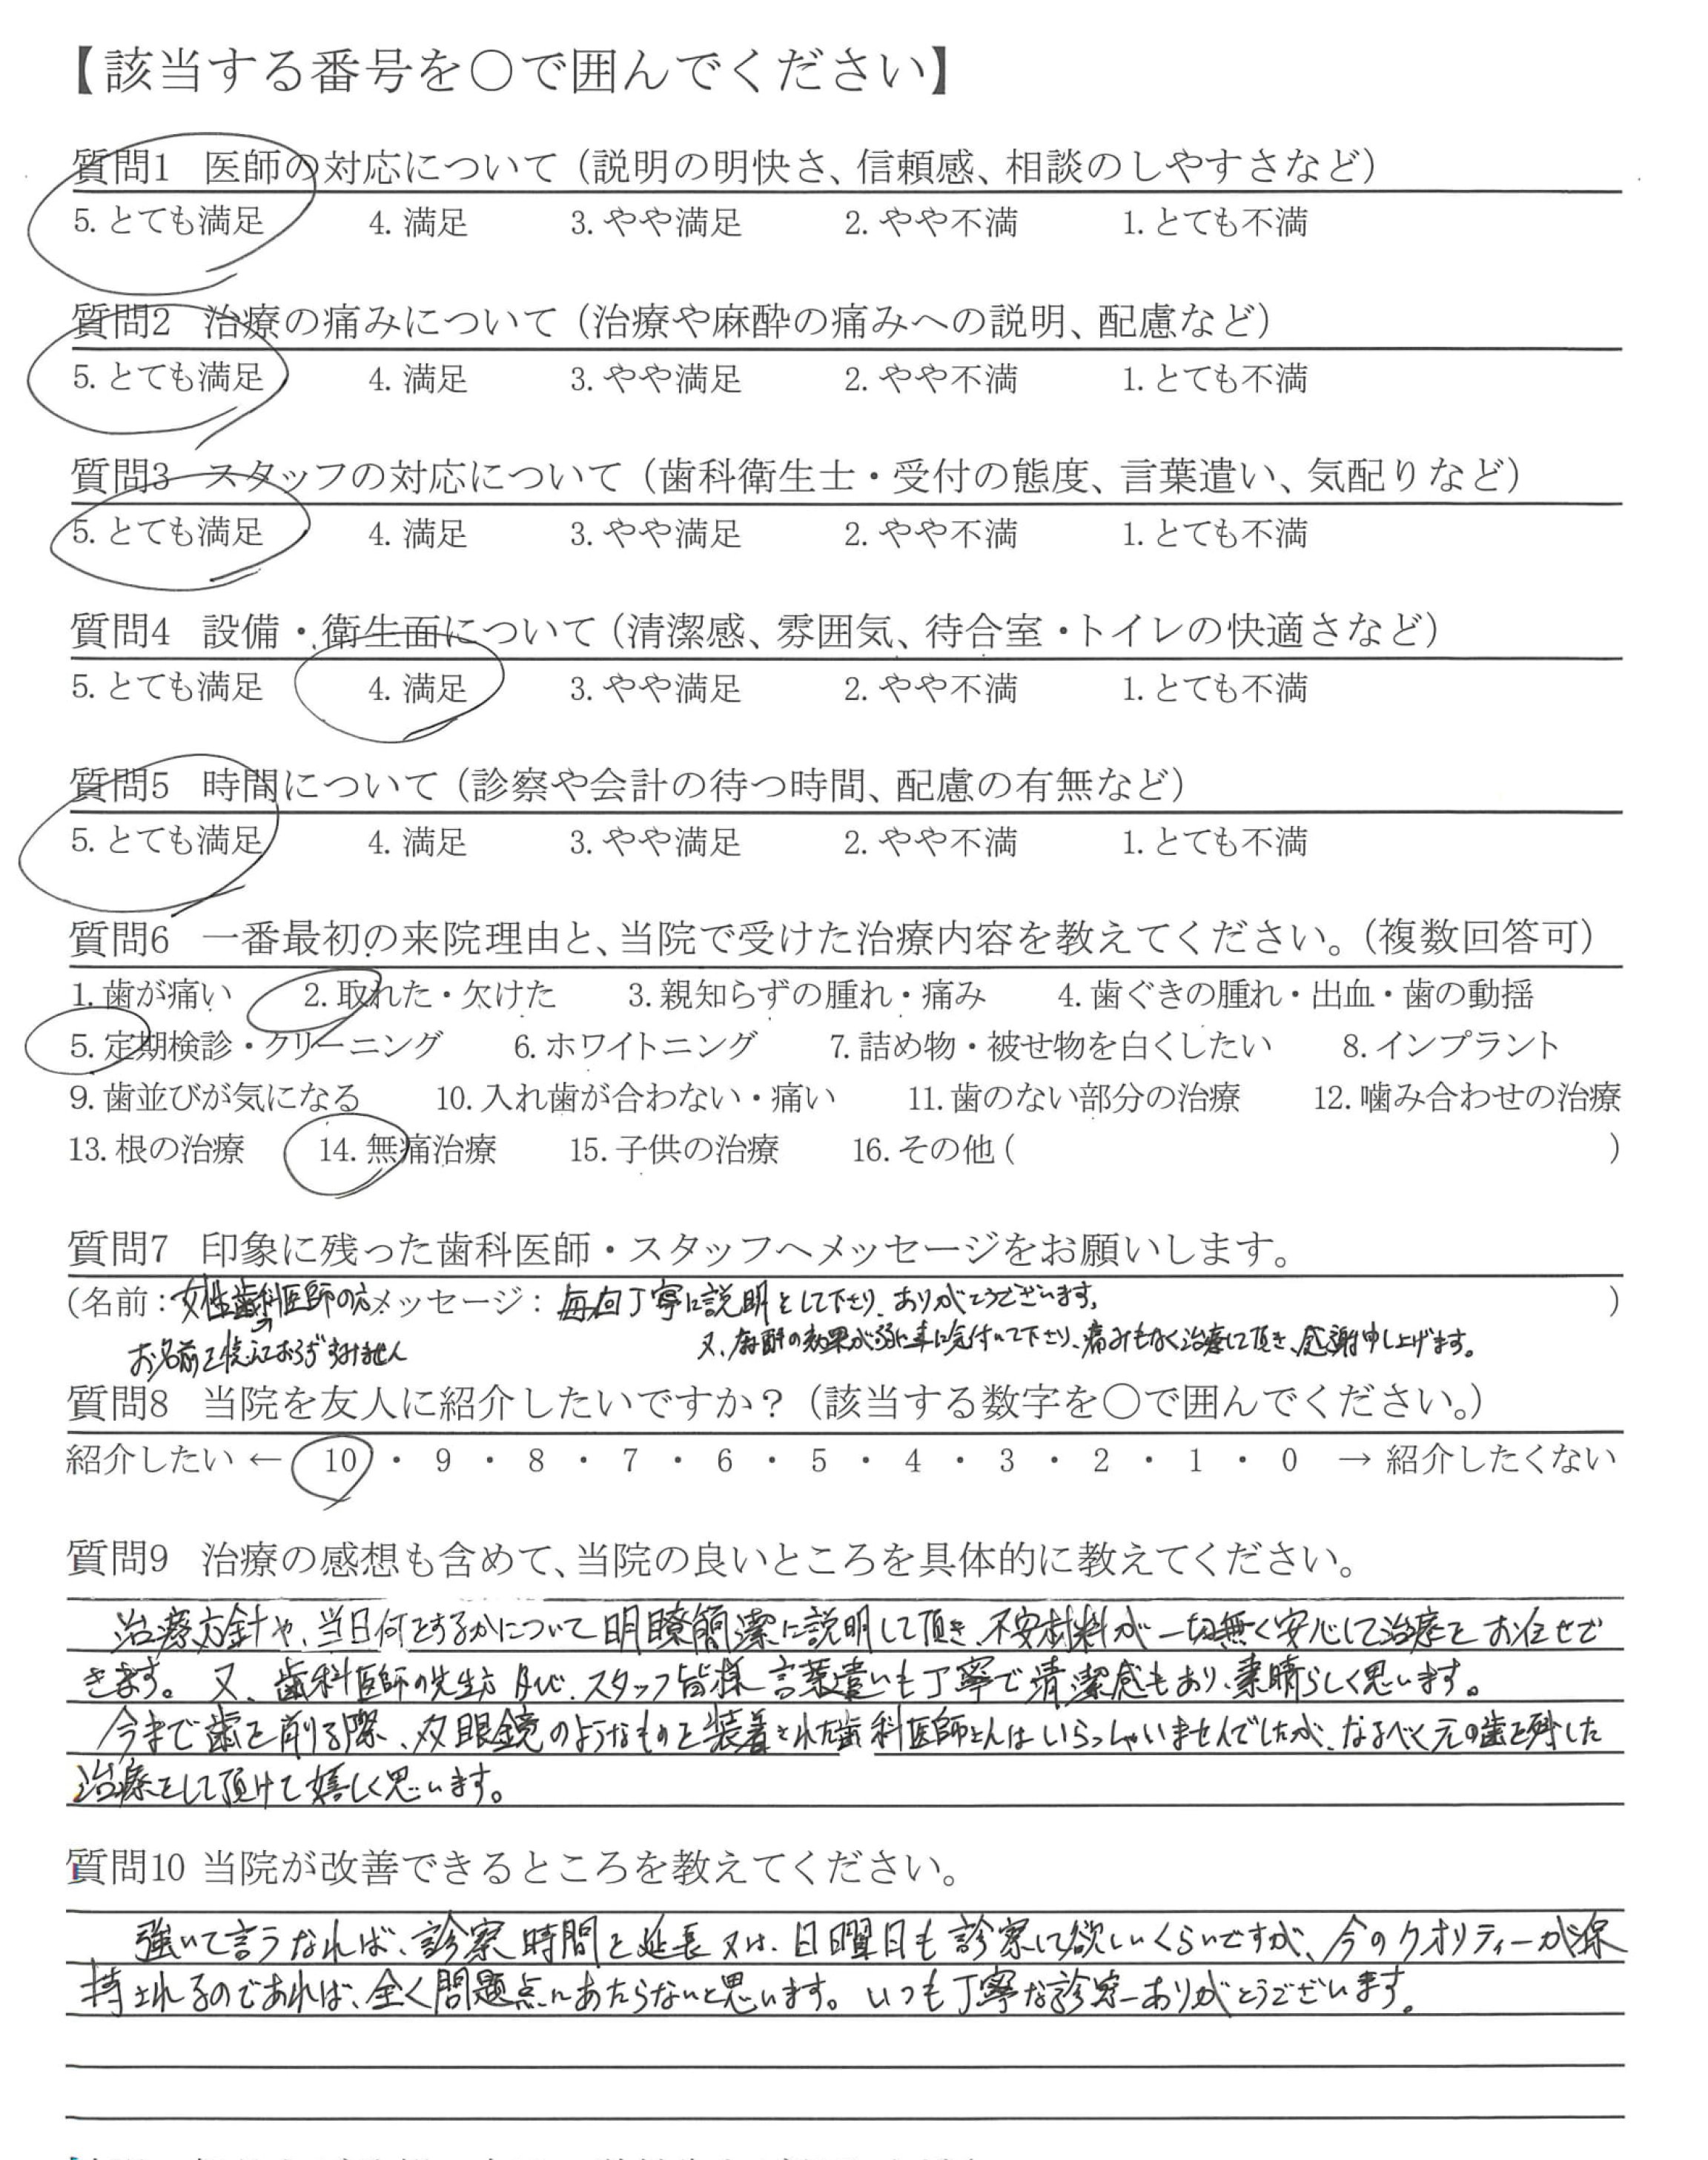 【該当する番号を○で囲んでください】
質問1 医師の対応について（説明の明快さ、信頼感、相談のしやすさなど）
5. とても満足 4. 満足 3. やや満足 2. やや不満 1. とても不満
質問2 治療の痛みについて（治療や麻酔の痛みへの説明、配慮など）
5. とても満足 4. 満足 3. やや満足 2. やや不満 1. とても不満
質問3 スタッフの対応について（歯科衛生士・受付の態度、言葉遣い、気配りなど）
5. とても満足 4. 満足 3. やや満足 2. やや不満 1. とても不満
質問4 設備・衛生面について（清潔感、雰囲気、待合室・トイレの快適さなど）
5. とても満足 4. 満足 3. やや満足 2. やや不満 1. とても不満
質問5 時間について（診察や会計の待つ時間、配慮の有無など）
5. とても満足 4. 満足 3. やや満足 2. やや不満 1. とても不満
質問6 一番最初の来院理由と、当院で受けた治療内容を教えてください。（複数回答可）
1. 歯が痛い 2. 取れた・欠けた 3. 親知らずの腫れ・痛み 4. 歯ぐきの腫れ・出血・歯の動揺
5. 定期検診・クリーニング 6. ホワイトニング 7. 詰め物・被せ物を白くしたい 8. インプラント
9. 歯並びが気になる 10. 入れ歯が合わない・痛い 11. 歯のない部分の治療 12. 噛み合わせの治療
13. 根の治療 14. 無痛治療 15. 子供の治療 16. その他（ ）
質問7 印象に残った歯科医師・スタッフへメッセージをお願いします。
（名前：女性歯科医師の方 メッセージ：毎回丁寧に説明をして下さり、ありがとうございます。 ）
お名前を憶えておらずすみません 又、麻酔の効果が弱い事に気付いて下さり、痛みもなく治療して頂き、感謝申し上げます。
質問8 当院を友人に紹介したいですか？（該当する数字を○で囲んでください。）
紹介したい ← 10 ・ 9 ・ 8 ・ 7 ・ 6 ・ 5 ・ 4 ・ 3 ・ 2 ・ 1 ・ 0 → 紹介したくない
質問9 治療の感想も含めて、当院の良いところを具体的に教えてください。
治療方針や、当日何をするかについて明瞭簡潔に説明して頂き、不安材料が一切無く安心して治療をお任せで
きます。又、歯科医師の先生方及び、スタッフ皆様言葉遣いも丁寧で清潔感もあり、素晴らしく思います。
今まで歯を削る際、双眼鏡のようなものを装着された歯科医師さんはいらっしゃいませんでしたが、なるべく元の歯を残した
治療をして頂けて嬉しく思います。
質問10 当院が改善できるところを教えてください。
強いて言うなれば、診察時間を延長又は、日曜日も診察して欲しいくらいですが、今のクオリティーが保
持されるのであれば、全く問題点にあたらないと思います。いつも丁寧な診察ありがとうございます。